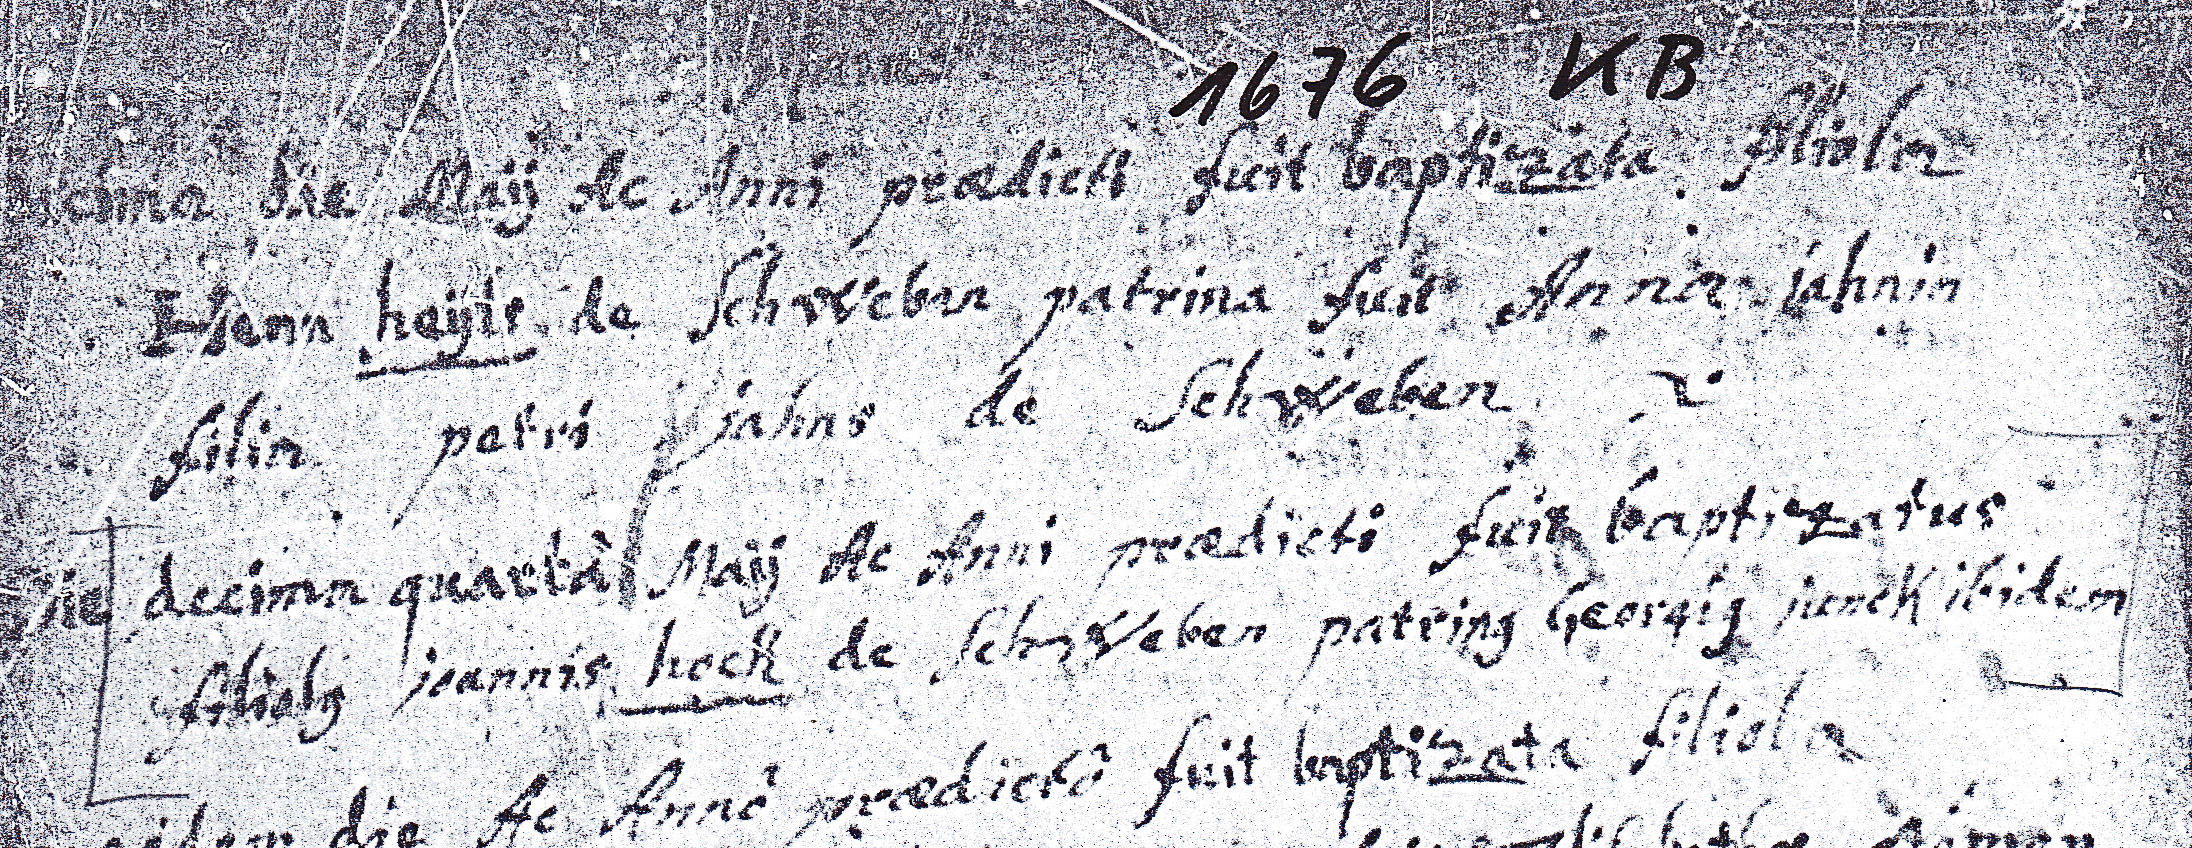 1676 KB
die Maij Ac Anni prædicti fuit baptizata filiola
Henn heÿte de Schweben patrina fuit Anna jahnin
filia petri jahns de Schweben
die decima quartà Maij Ac Anni prædicti fuit baptizatus
filiolg joannis hock de Schweben patring Georgig junck ibidem
eidem die Ac Anno prædicto fuit baptizata filiola